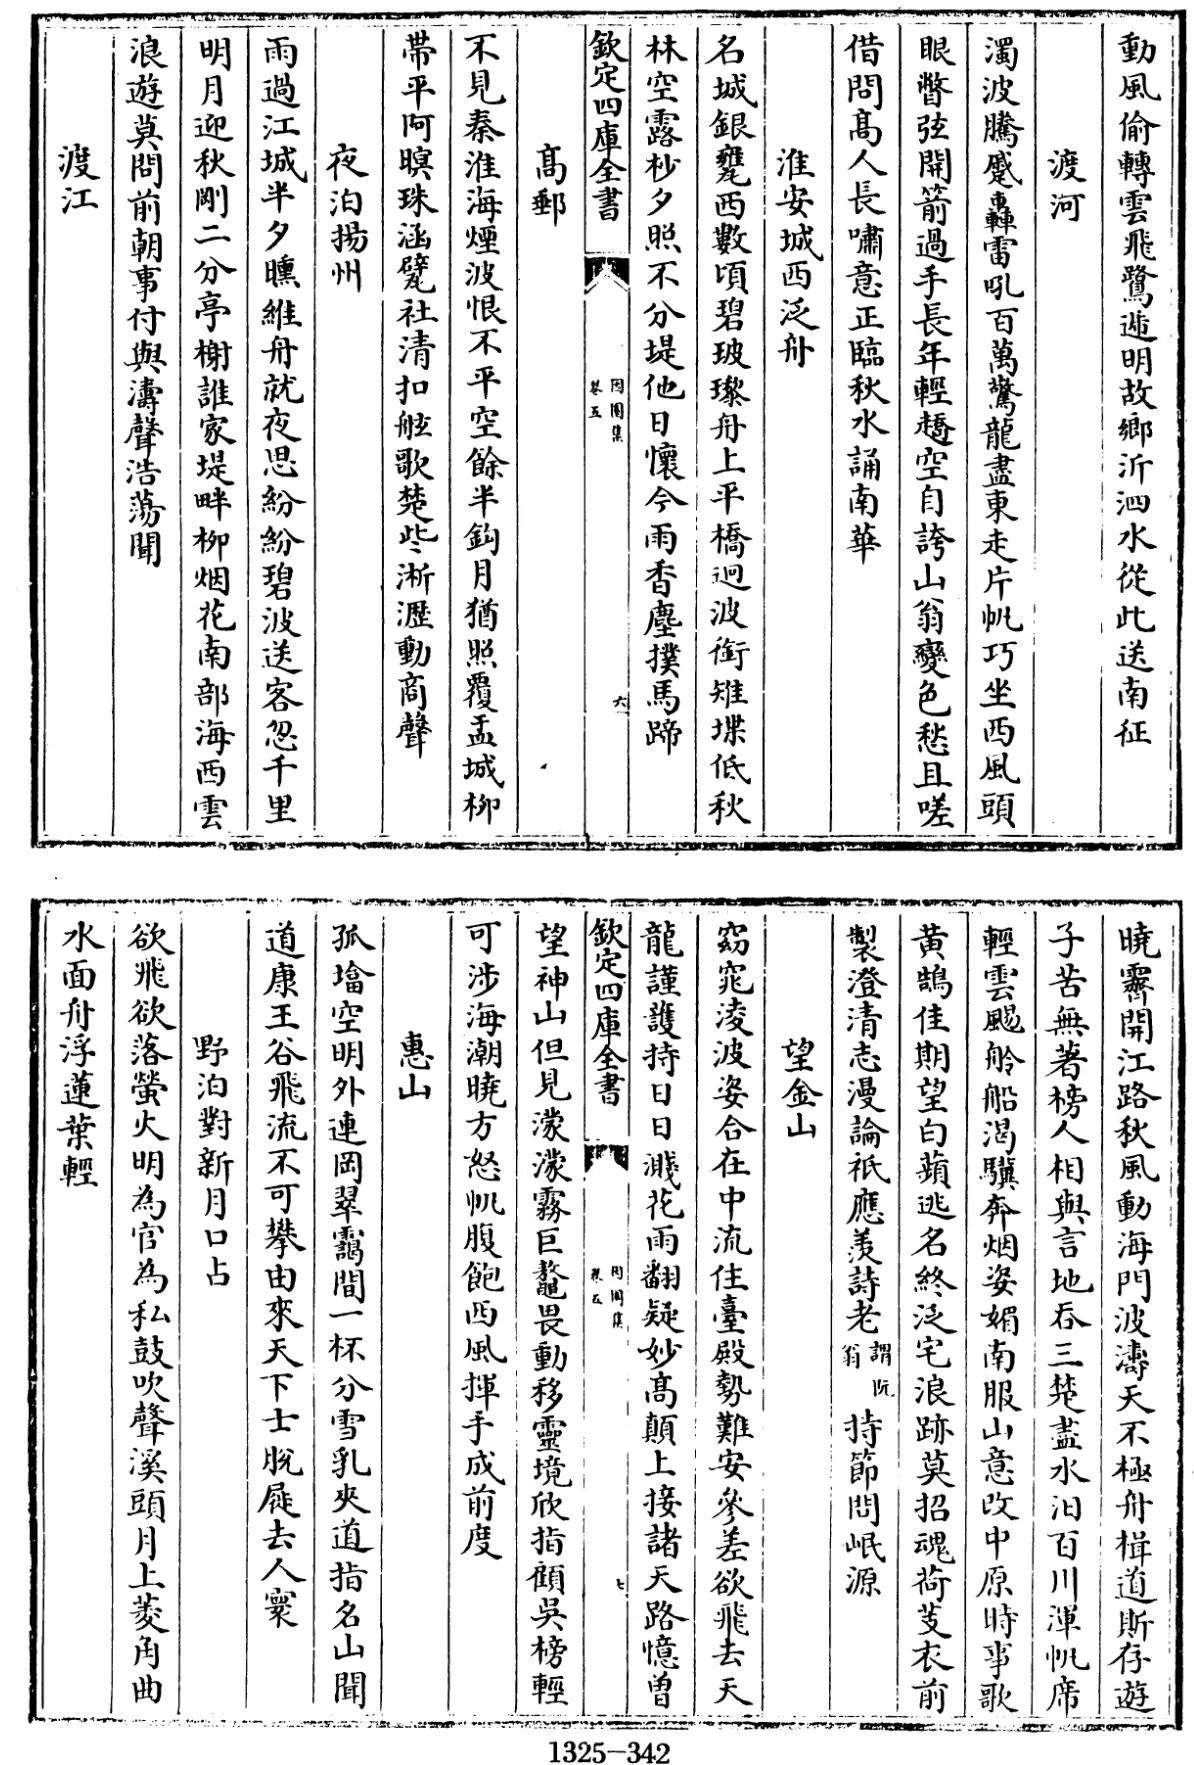 動風偷轉雲飛鷺遊明故鄉沂泗水從此送南征
渡河
濁波騰蹙轟雷吼百萬驚龍盡東走片帆巧坐西風頭
眼瞥弦開箭過手長年輕趫空自誇山翁變色愁且嗟
借問髙人長嘯意正臨秋水誦南華
淮安城西泛舟
名城銀甕西數頃碧玻瓈舟上平橋迥波銜雉堞低秋
林空露杪夕照不分堤他日懷今雨香塵撲馬蹄
欽定四庫全書
因園集
卷五
六
髙郵
不見秦淮海煙波恨不平空餘半鈎月猶照覆盂城柳
帶平阿暝珠涵甓社清扣舷歌楚些淅瀝動商聲
夜泊揚州
雨過江城半夕曛維舟就夜思紛紛碧波送客忽千里
明月迎秋剛二分亭榭誰家堤畔柳烟花南部海西雲
浪遊莫問前朝事付與濤聲浩蕩聞
渡江
曉霽開江路秋風動海門波濤天不極舟楫道斯存遊
子苦無著榜人相與言地吞三楚盡水汩百川渾帆席
輕雲颺舲船渴驥奔烟姿媚南服山意改中原時事歌
黄鵠佳期望白蘋逃名終泛宅浪跡莫招魂荷芰衣前
製澄清志漫論祇應羨詩老謂阮翁持節問岷源
望金山
窈窕淩波姿合在中流住臺殿勢難安參差欲飛去天
龍謹護持日日濺花雨翻疑妙髙顛上接諸天路憶曽
欽定四庫全書
因園集
卷五
七
望神山但見濛濛霧巨鼇畏動移靈境欣指顧吳榜輕
可涉海潮曉方怒帆腹飽西風揮手成前度
惠山
孤㙮空明外連岡翠靄間一杯分雪乳夾道指名山聞
道康王谷飛流不可攀由來天下士脫屣去人寰
野泊對新月口占
欲飛欲落螢火明為官為私鼓吹聲溪頭月上菱角曲
水面舟浮蓮葉輕
1325-342